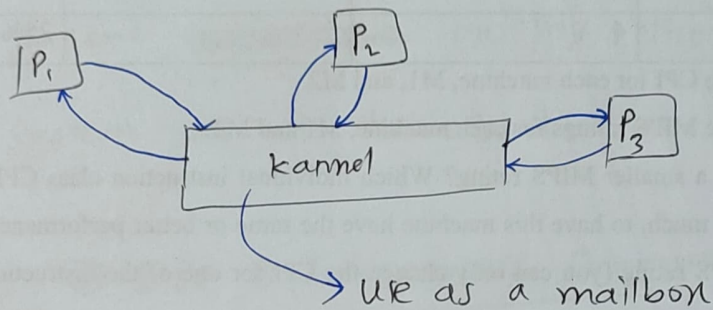 P1
P2
P3
kannel
use as a mailbox